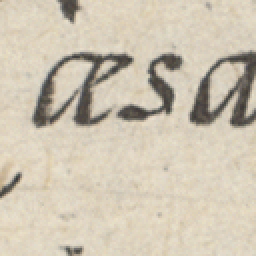 æsa